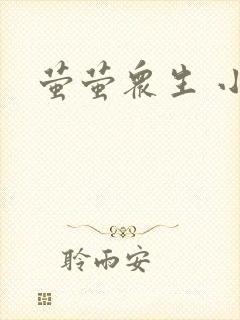 萤萤众生 小
聆雨安